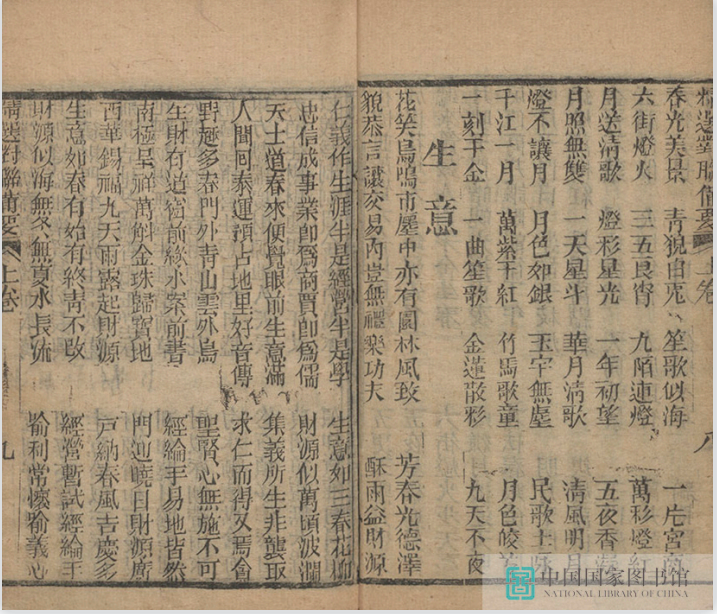 精選對聯備要 上卷 八
春光美景 青貌白克 笙歌似海 一片宮商
六街燈火 三五良宵 九陌連燈 萬彩燈
月送清歌 燈彩星光 一年初望 五夜香
月照無雙 一天星斗 華月清歌 清風明月
燈不讓月 月色如銀 玉宇無塵 民歌土
千江一月 萬紫千紅 竹馬歌童 月色皎
一刻千金 一曲笙歌 金蓮散彩 九天不夜
生意
花笑鳥鳴市廛中亦有園林風致 芳春光德澤
貌恭言讓交易內豈無禮樂功夫 酥雨益財源
仁義作生涯半是經營半是學 生意如三春花柳
忠信成事業即為商賈即為儒 財源似萬頃波瀾
天士道春來便覺眼前生意滿 集義所生非襲取
人間回泰運預占地里好音傳 求仁而得又焉貪
野趣多春門外青山雲外鳥 聖賢心無施不可
生財有道窗前綠水案前書 經綸手易地皆然
南極呈祥萬斛金珠歸寶地 門迎曉日財源廣
西華錫福九天雨露起財源 戶納春風吉慶多
生意如春有始有終靑不改 經營暫試經綸手
財源似海無冬無夏水長流 喻利常懷喻義心
精選對聯備要 上卷 九
中国国家图书馆
NATIONAL LIBRARY OF CHINA